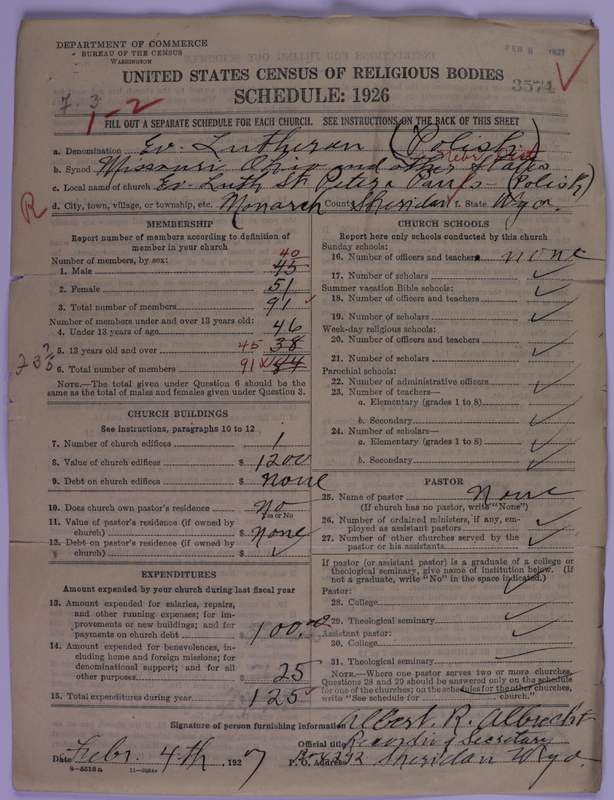 DEPARTMENT OF COMMERCE
BUREAU OF THE CENSUS
WASHINGTON
FEB 8 1927
UNITED STATES CENSUS OF RELIGIOUS BODIES
3574
SCHEDULE: 1926
7-3
1-2
FILL OUT A SEPARATE SCHEDULE FOR EACH CHURCH. SEE INSTRUCTIONS ON THE BACK OF THIS SHEET
a. Denomination Ev. Lutheran (Polish)
b. Synod Missouri, Ohio and other States
c. Local name of church Ev. Luth St. Peter Pauls (Polish)
R
d. City, town, village, or township, etc. Monarch County Sheridan f. State Wyo.
MEMBERSHIP
Report number of members according to definition of member in your church
Number of members, by sex:
40
1. Male 45
2. Female 51
3. Total number of members 91
Number of members under and over 13 years old:
4. Under 13 years of age 46
5. 13 years old and over 45 38
6. Total number of members 91 84
NOTE.—The total given under Question 6 should be the same as the total of males and females given under Question 3.
CHURCH BUILDINGS
See instructions, paragraphs 10 to 12
7. Number of church edifices 1
8. Value of church edifices $ 1200
9. Debt on church edifices $ none
10. Does church own pastor's residence no
Yes or No
11. Value of pastor's residence (if owned by church) $ none
12. Debt on pastor's residence (if owned by church) $
EXPENDITURES
Amount expended by your church during last fiscal year
13. Amount expended for salaries, repairs, and other running expenses; for improvements or new buildings; and for payments on church debt $ 100.00
14. Amount expended for benevolences, including home and foreign missions; for denominational support; and for all other purposes $ 25
15. Total expenditures during year $ 125
CHURCH SCHOOLS
Report here only schools conducted by this church
Sunday schools:
16. Number of officers and teachers none
17. Number of scholars
Summer vacation Bible schools:
18. Number of officers and teachers
19. Number of scholars
Week-day religious schools:
20. Number of officers and teachers
21. Number of scholars
Parochial schools:
22. Number of administrative officers
23. Number of teachers—
a. Elementary (grades 1 to 8)
b. Secondary
24. Number of scholars—
a. Elementary (grades 1 to 8)
b. Secondary
PASTOR
25. Name of pastor None
(If church has no pastor, write "None")
26. Number of ordained ministers, if any, employed as assistant pastors
27. Number of other churches served by the pastor or his assistants
If pastor (or assistant pastor) is a graduate of a college or theological seminary, give name of institution below. (If not a graduate, write "No" in the space indicated.)
Pastor:
28. College
29. Theological seminary
Assistant pastor:
30. College
31. Theological seminary
NOTE.—Where one pastor serves two or more churches, Questions 28 and 29 should be answered only on the schedule for one of the churches; on the schedules for the other churches, write "See schedule for church."
Signature of person furnishing information Albert R. Albrecht
Official title Recording Secretary
Date Febr. 4th, 1927
P. O. Address Box 752 Sheridan Wyo.
8-5518a